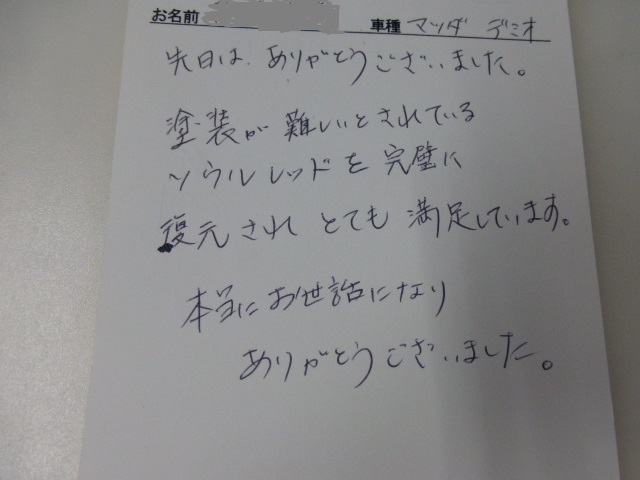 お名前 車種 マツダ デミオ
先日は、ありがとうございました。
塗装が難しいとされている
ソウルレッドを完璧に
復元されとても満足しています。
本当にお世話になり
ありがとうございました。